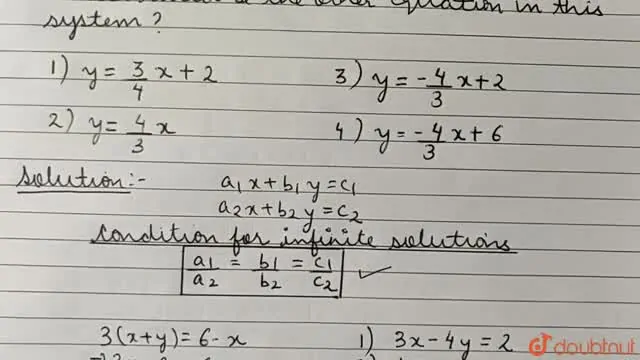 the other equation in this
system?
1) y = 3/4 x + 2
3) y = -4/3 x + 2
2) y = 4/3 x
4) y = -4/3 x + 6
Solution:-
a₁x + b₁y = c₁
a₂x + b₂y = c₂
Condition for infinite solutions
a₁/a₂ = b₁/b₂ = c₁/c₂ ✓
3(x+y) = 6-x
1) 3x - 4y = 2
doubtnut